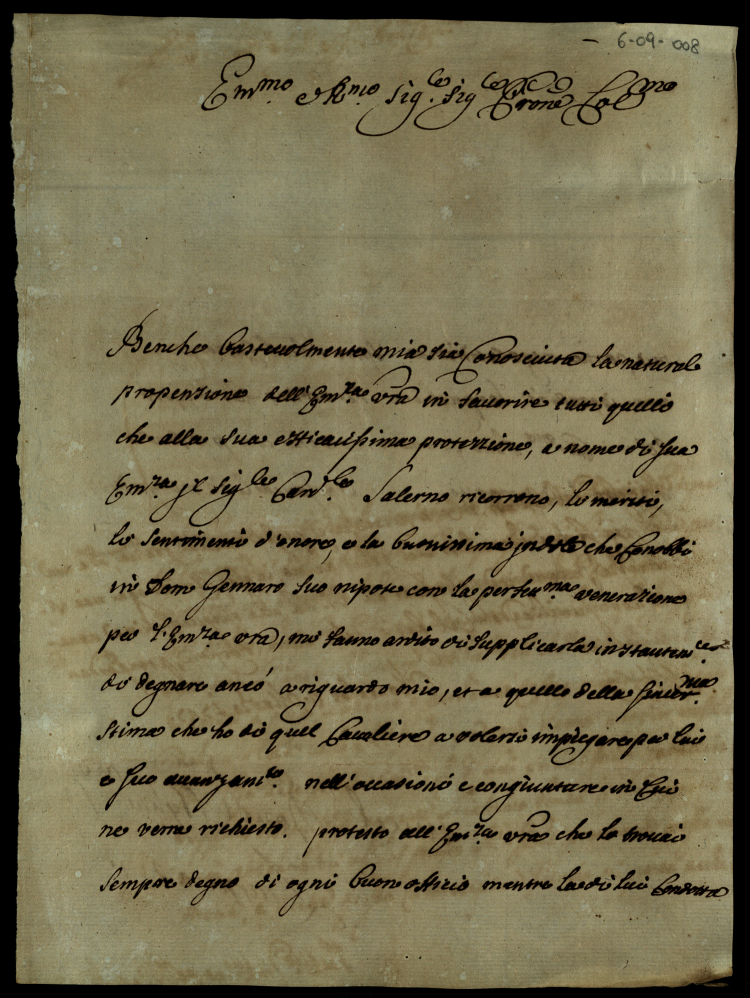 6-09-008
Em.mo e R.mo Sig.re Sig.re P'rone Col.mo
Benche bastevolmente mia sia Conosciuta la natural
propenzione dell'Em.za vra in favorire tutti quelli
che alla sua efficacissima protezzione, a nome di sua
Em.za jl sig.le Card.le Salerno ricorrono, lo merito,
lo sentimenti d'onore, e la buonissima jndole che Conobbi
in Dom Gennaro suo nipote con la perfett.ma venerazione
per l'Em.za vra, mi fanno ardito di supplicarla
di degnare ancò a riguardo mio, et a quello della sincer.ma
stima che ho di quel Cavaliere a volersi impiegare per lui
e suo avanzam.to nell'occasioni e congiunture in Cui
ne verra richiesto. protesto all'Em.za vra che lo trovai
sempre degno di ogni buon offizio mentre la di lui Condotta